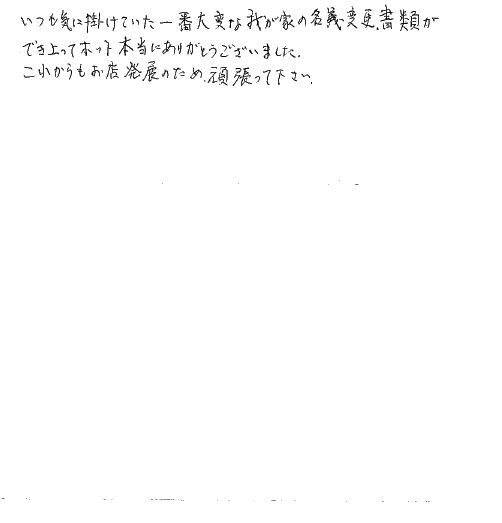 いつも気に掛けていた一番大変な我が家の名義変更書類が
でき上ってホット本当にありがとうございました.
これからもお店発展のため.頑張って下さい.